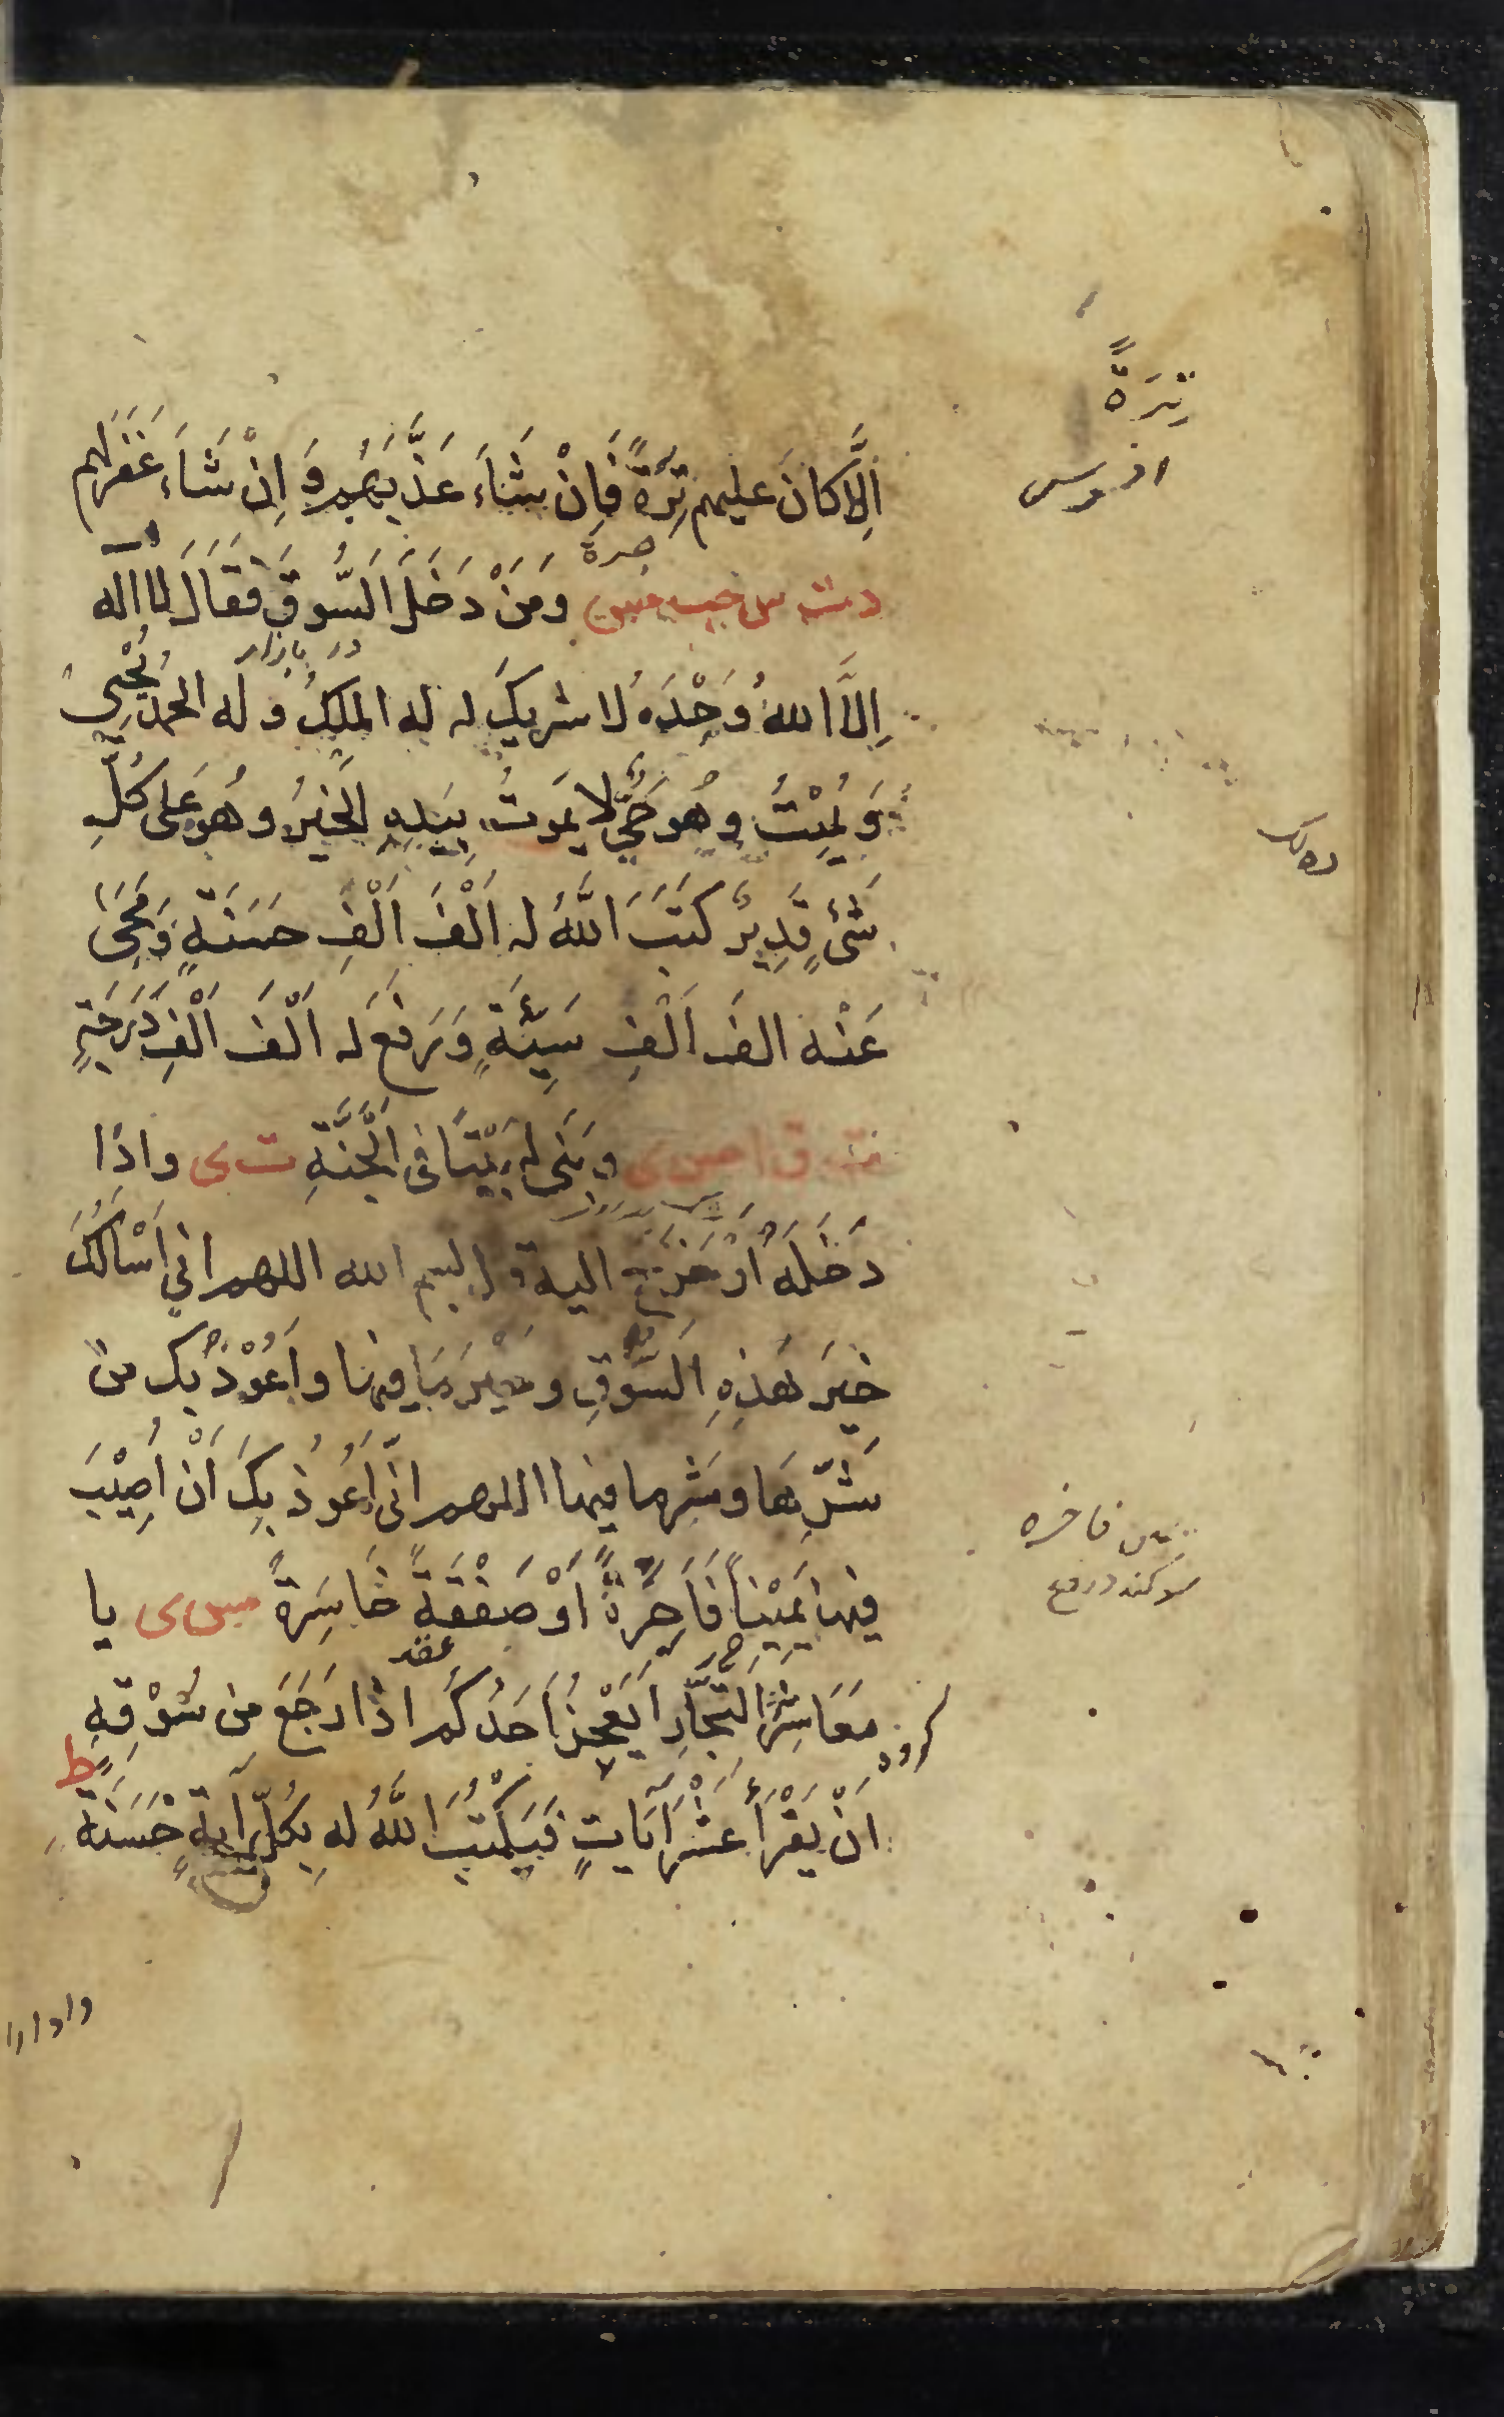 تِرَةً
اِلَّا كَانَ عليهم تِرَةً فَاِنْ شَاءَ عَذَّبَهُم وَ اِنْ شَاءَ غَفَرَ لَهم
دت س حب مس وَمَنْ دَخَلَ السُّوقَ فَقَالَ لا اله
در بازار
اِلَّا اللهُ وَحْدَهُ لا شريكَ له له الملكُ و له الحمدُ يُحْيِي
وَ يُمِيْتُ وهُو حَيٌّ لا يَموتُ بِيَدِهِ الخيرُ وهُو عَلى كُلِّ
شَيْءٍ قَدِيرٌ كَتَبَ اللهُ له اَلْفَ اَلْفِ حَسَنَةٍ وَمَحَى
عَنْه الفَ اَلْفِ سَيِّئَةٍ وَرَفَعَ له اَلْفَ اَلْفِ دَرَجَةٍ
ت ق ا مس ى وبَنَى له بَيْتًا فى الجَنَّةِ ت ى واذَا
دَخَلَهُ اَوْ خَرَجَ اليه قال بسم الله اللهم اني اَسْأَلُكَ
خيرَ هَذِهِ السُّوقِ وخَيْرَ مَا فيها واَعُوْذُ بك من
شَرِّهَا وشَرِّ ما فيها اللهم انّى اَعُوذُ بِكَ اَنْ اُصِيْبَ
يمين فاخره
سوكند دروغ
فيها يَمِيْناً فَاجِرَةً اَوْ صَفْقَةً خَاسِرَةً مس ى يا
عقد
مَعَاشِرَ التُّجَّارِ اَيَعْجِزُ اَحَدُكُم اذَا رَجَعَ من سُوْقِهِ
اَنْ يَقْرَأَ عَشْرَ آيَاتٍ فَيَكْتُبَ اللهُ له بِكُلِّ آيَةٍ حَسَنَةً ط